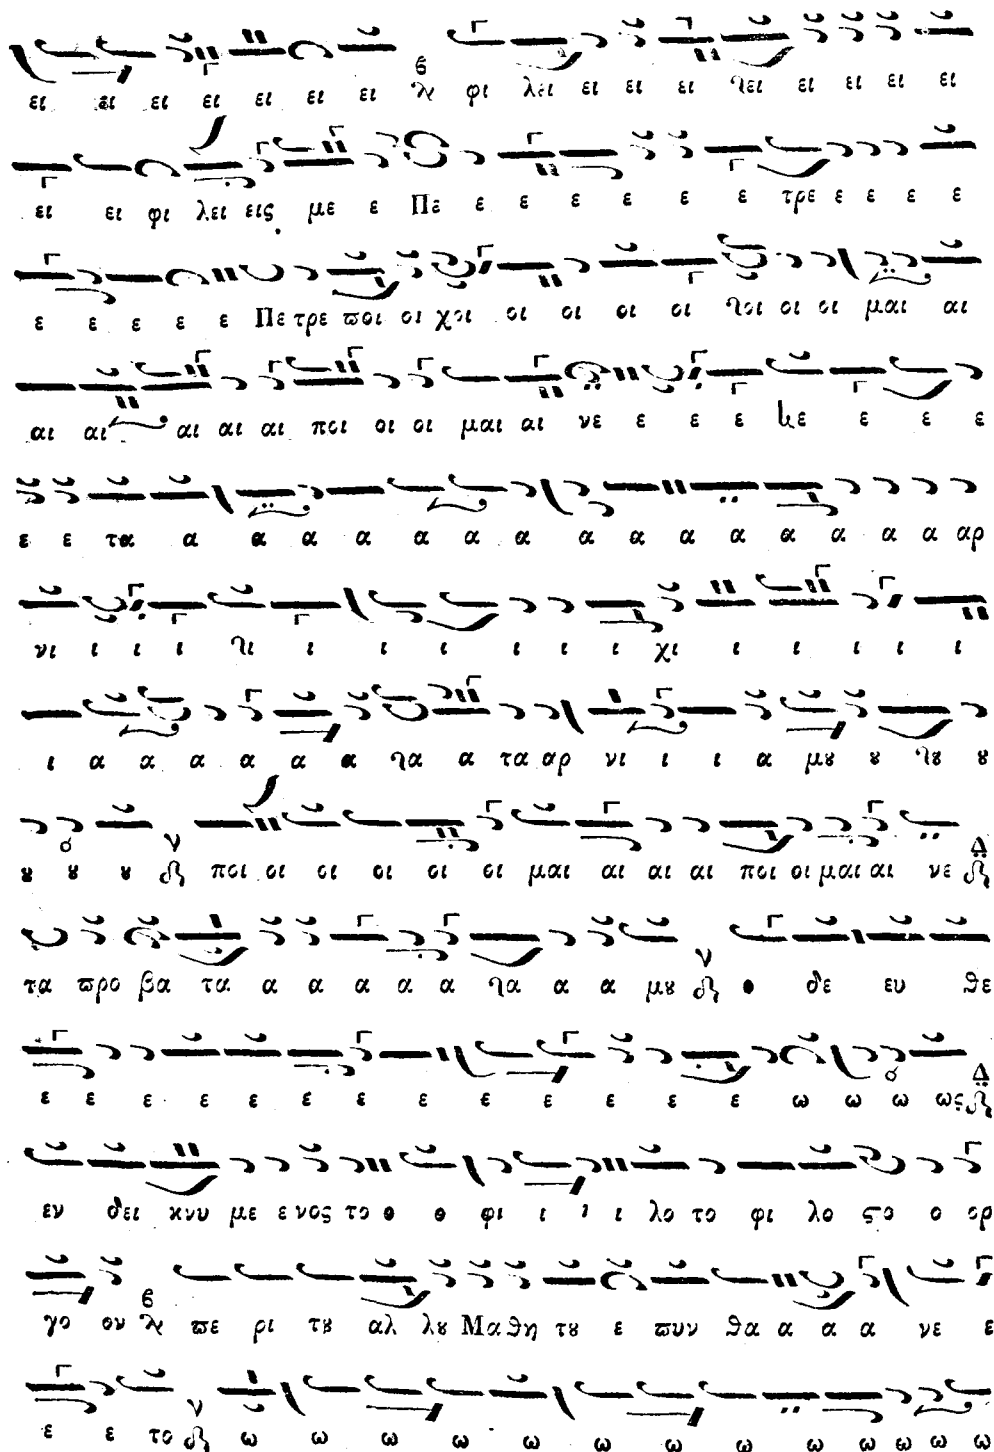 ει ει ει ει ει ει ει φι λει ει ει ει ει ει ει ει ει
ει ει φι λει εις με ε Πε ε ε ε ε ε ε τρε ε ε ε ε
ε ε ε ε ε Πε τρε ϖοι οι χοι οι οι οι οι οι οι οι μαι αι
αι αι αι αι αι ποι οι οι μαι αι νε ε ε ε ε ε ε
ε ε τα α α α α α α α α α α α α α α α αρ
νι ι ι ι ι ι ι ι ι ι ι χι ι ι ι ι ι
ι α α α α α α α α τα αρ νι ι ι α μȣ ȣ ȣ ȣ
ȣ ȣ ȣ ποι οι οι οι οι οι μαι αι αι αι ποι οι μαι αι νε
τα ϖρο βα τα α α α α α α α α μȣ ο δε ευ θε
ε ε ε ε ε ε ε ε ε ε ε ε ε ω ω ω ως
εν δει κνυ με ε νος το ο ο φι ι ι ι λο το φι λο ϛο ο ορ
γο ον ϖε ρι τȣ αλ λȣ Μα θη τȣ ε ϖυν θα α α α νε ε
ε ε το ω ω ω ω ω ω ω ω ω ω ω ω